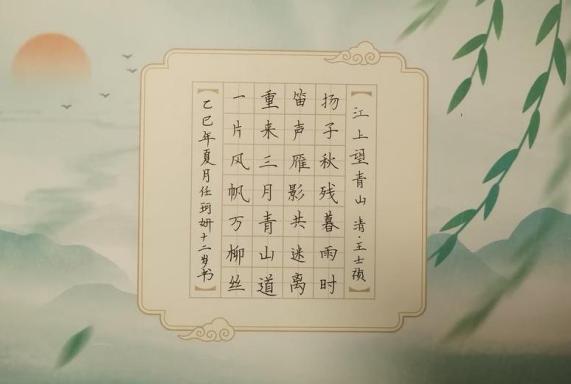 江上望青山 清·王士禛
扬子秋残暮雨时
笛声雁影共迷离
重来三月青山道
一片风帆万柳丝
乙巳年夏月任珂妍十二岁书